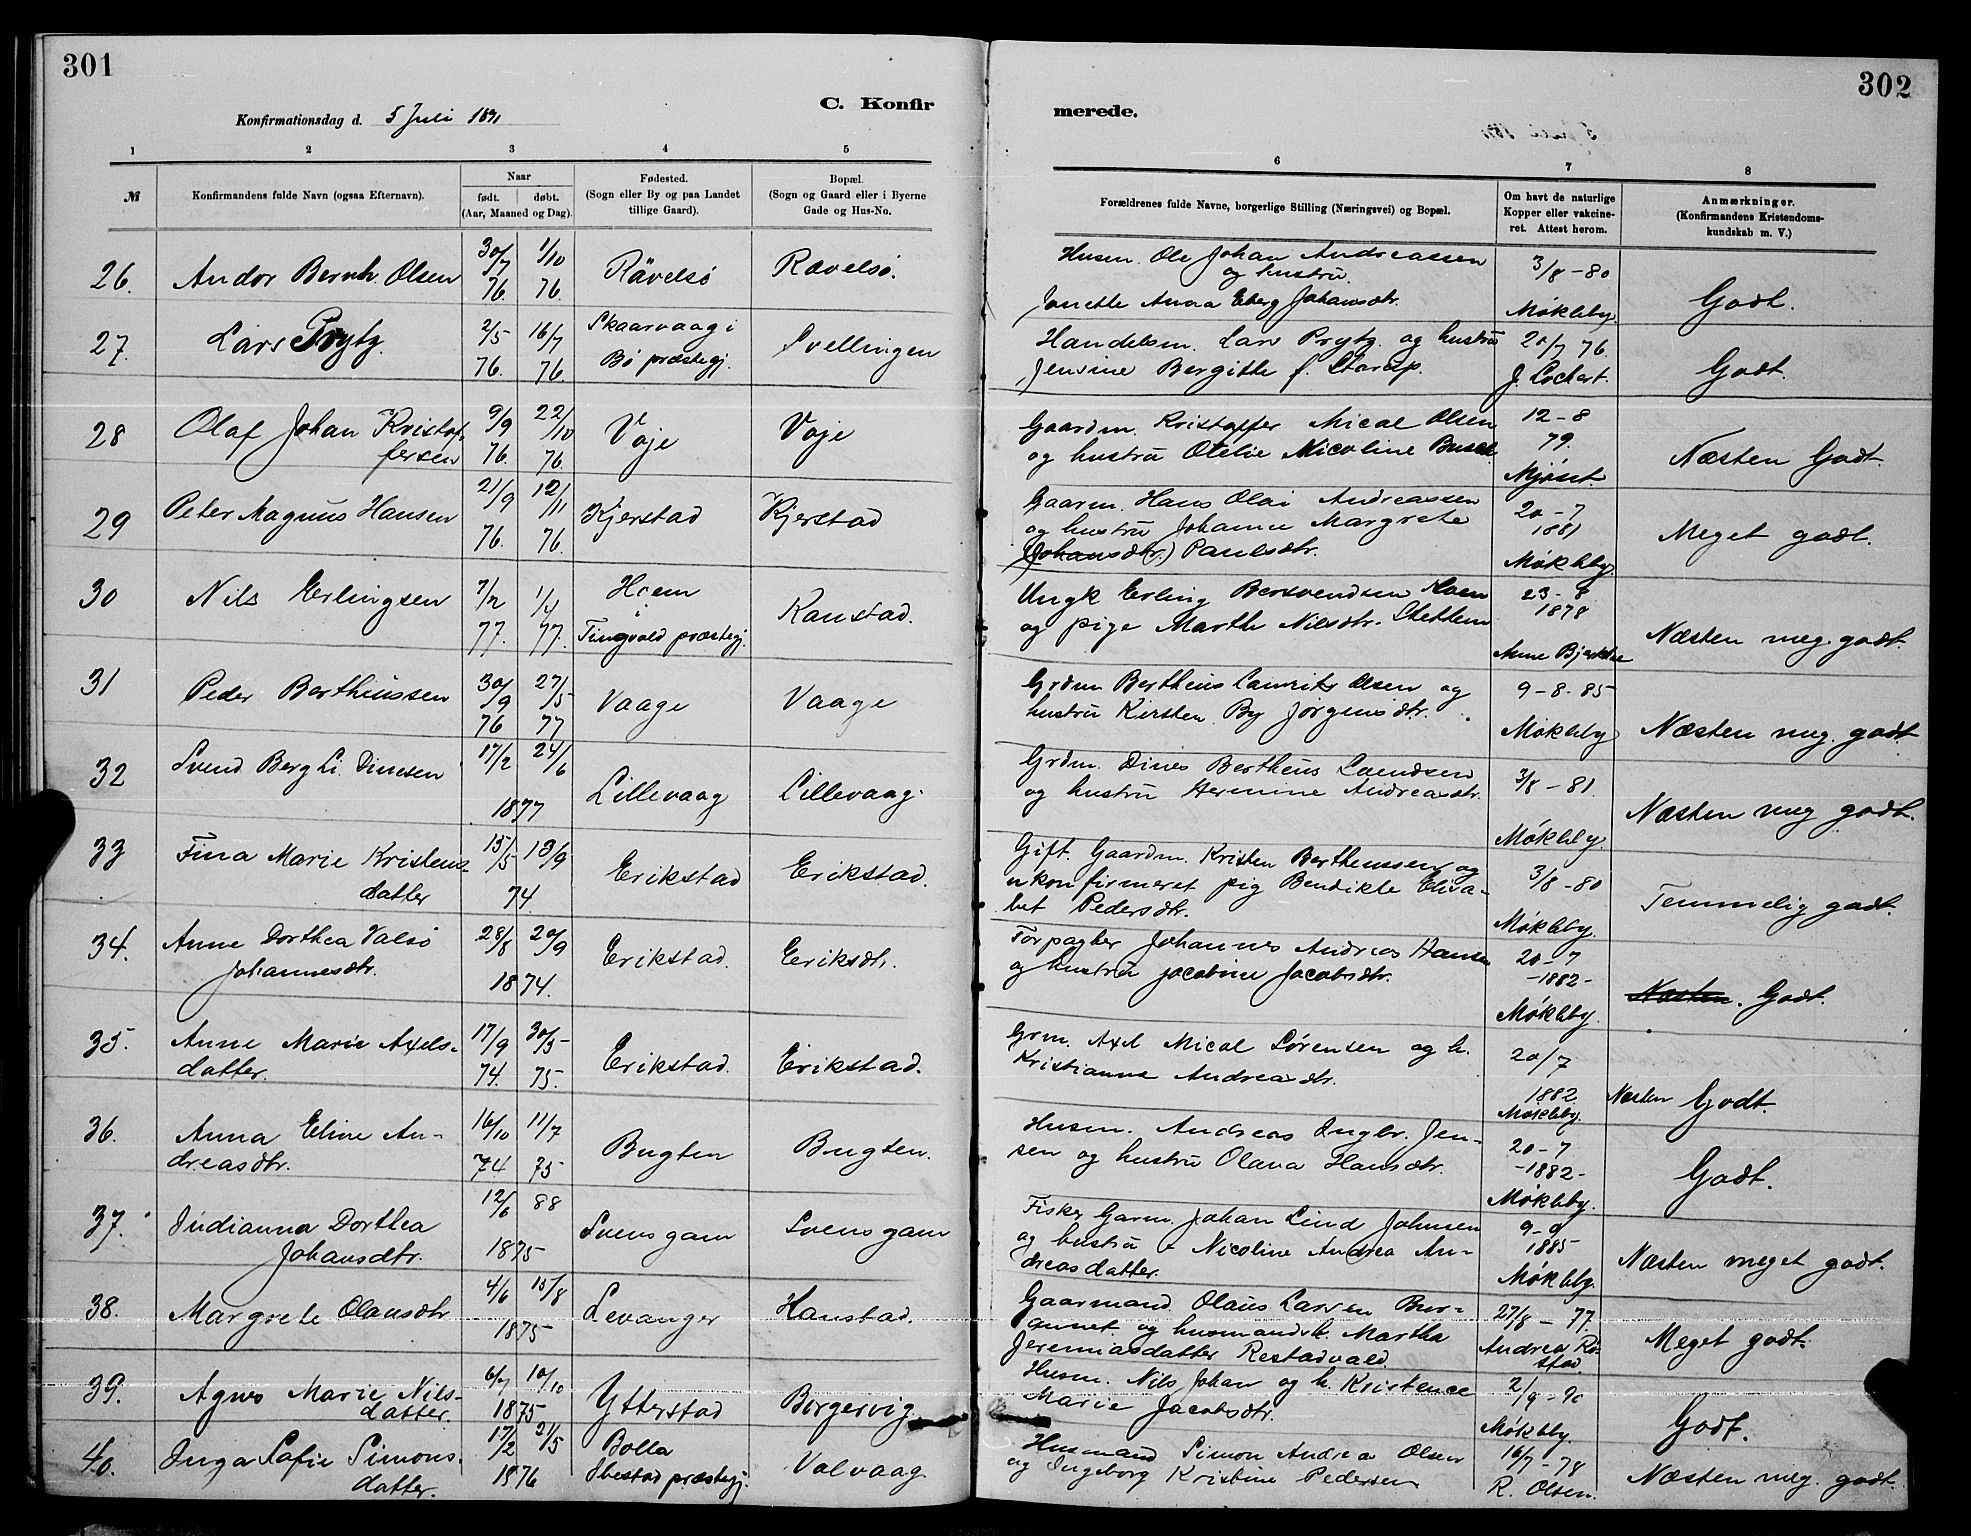 301
302
C. Konfir
merede.
Konfirmationsdag d. 5 Juli 1891
1 2 3 4 5 6 7 8
№
Konfirmandens fulde Navn (ogsaa Efternavn).
Naar
født. døbt.
(Aar, Maaned og Dag).
Fødested.
(Sogn eller By og paa Landet
tillige Gaard).
Bopæl.
(Sogn og Gaard eller i Byerne
Gade og Hus-No.
Forældrenes fulde Navne, borgerlige Stilling (Næringsvei) og Bopæl.
Om havt de naturlige
Kopper eller vakcine-
ret. Attest herom.
Anmærkninger.
(Konfirmandens Kristendoms-
kundskab m. V.)
26. Andor Bernh. Olsen 30/7 76. 1/10 76. Rävelsö Rævelsø.
Husm. Ole Johan Andreassen
og hustru
Jonette Anna Eberg Johansdtr.
3/8-80
Møkleby.
Godt.
27. Lars Prytz. 2/5 76. 16/7 76. Skaarvaag i
Bö præstegj.
Svellingen
Handelsm. Lars Prytz. og hustru
Jensine Bergitte f. Starup.
20/7 76.
J. Lochert.
Godt.
28 Olaf Johan Kristof-
fersen
9/9 76. 22/10 76 Voje Voje
Gaardm. Kristoffer Mical Olsen
og hustru Otelie Nicoline Busch
12-8
79.
Mjøset.
Næsten Godt.
29 Peter Magnus Hansen 21/9 76. 12/11 76. Kjerstad Kjerstad
Gaarm. Hans Olai Andreassen
og hustru Johanne Margrete
(Johansdtr.) Paulsdtr.
20-7
1881
Møkleby.
Meget godt.
30 Nils Erlingsen 7/2 77. 1/4 77. Hoem
Tingvold præstegj.
Kanstad.
Ungk Erling Bersvendsen Hoem
og pige Marthe Nilsdtr.
23-8
1878
Næsten meg. godt.
31 Peder Bertheussen 30/9 76 27/5 77 Vaage Vaage
Grdm Bertheus Laurits Olsen og
hustru Kirsten By Jörgensdtr.
9-8-85
Møkleby
Næsten meg. godt
32 Svend Berg Li Dinesen 17/2 24/6
1877
Lillevaag Lillevaag.
Grdm. Dines Bertheus
og hustru Hermine Andreasdtr.
3/8-81
Møkleby.
Næsten meg godt.
33 Fina Marie Kristens-
datter
15/5 13/9
74
Erikstad Erikstad.
Gift. Gaardm. Kristen Bertheussen og
ukonfirmeret pig Bendikte Elisa-
bet Pedersdtr.
3/8-80
Møkleby.
Temmelig godt.
34. Anne Dorthea Valsö
Johannesdtr.
28/8 20/9
1874.
Erikstad. Eriksdt.
Forpagter Johannes Andreas Hansen
og hustru Jacobine Jacobsdtr.
20-7
-1882-
Møkleby.
Næsten. Godt.
35. Anne Marie Axels-
datter.
17/9 74. 30/5 75. Erikstad. Erikstad.
Grm. Axel Mical Sørensen og h.
Kristianne Andreasdtr.
20/7
1882.
Møkleby.
Næsten Godt.
36. Anna Eline An-
dreasdtr.
16/10 74 11/7 75 Bugten Bugten.
Husm. Andreas Ingbr. Jen-
sen og hustru Olava Hansdtr.
20-7
-1882-
Møkleby.
Godt.
37. Indianna Dorthea
Johansdtr.
12/6 88
1875
Svensgam Svensgam
Fisker Garm. Johan Lind Johnsen
og hustru Nicoline Andrea An-
dreasdatter.
9-9
1885
Møkleby.
Næsten meget godt.
38. Margrete Olausdtr 4/6 15/8
1875
Levanger Hanstad.
Gaarmand. Olaus Larsen
og husmandsk. Martha
Jeremiasdatter Restadvald.
27/8-77.
Andrea Rö-
stad
Meget godt.
39. Agnes Marie Nils-
datter.
6/7 10/10
1875
Ytterstad Borgervig.
Husm. Nils Johan og h. Kristence
Marie Jacobsdtr.
Møkleby.
Godt.
40. Inga Sofie Simons-
datter.
17/2 21/5
1876
Bolla
Ibestad præstegj.
Valvaag
Husmand Simon Andreas Olsen
og Ingeborg Kristine Pedersen
16/7-78
R. Olsen.
Næsten meg. godt.